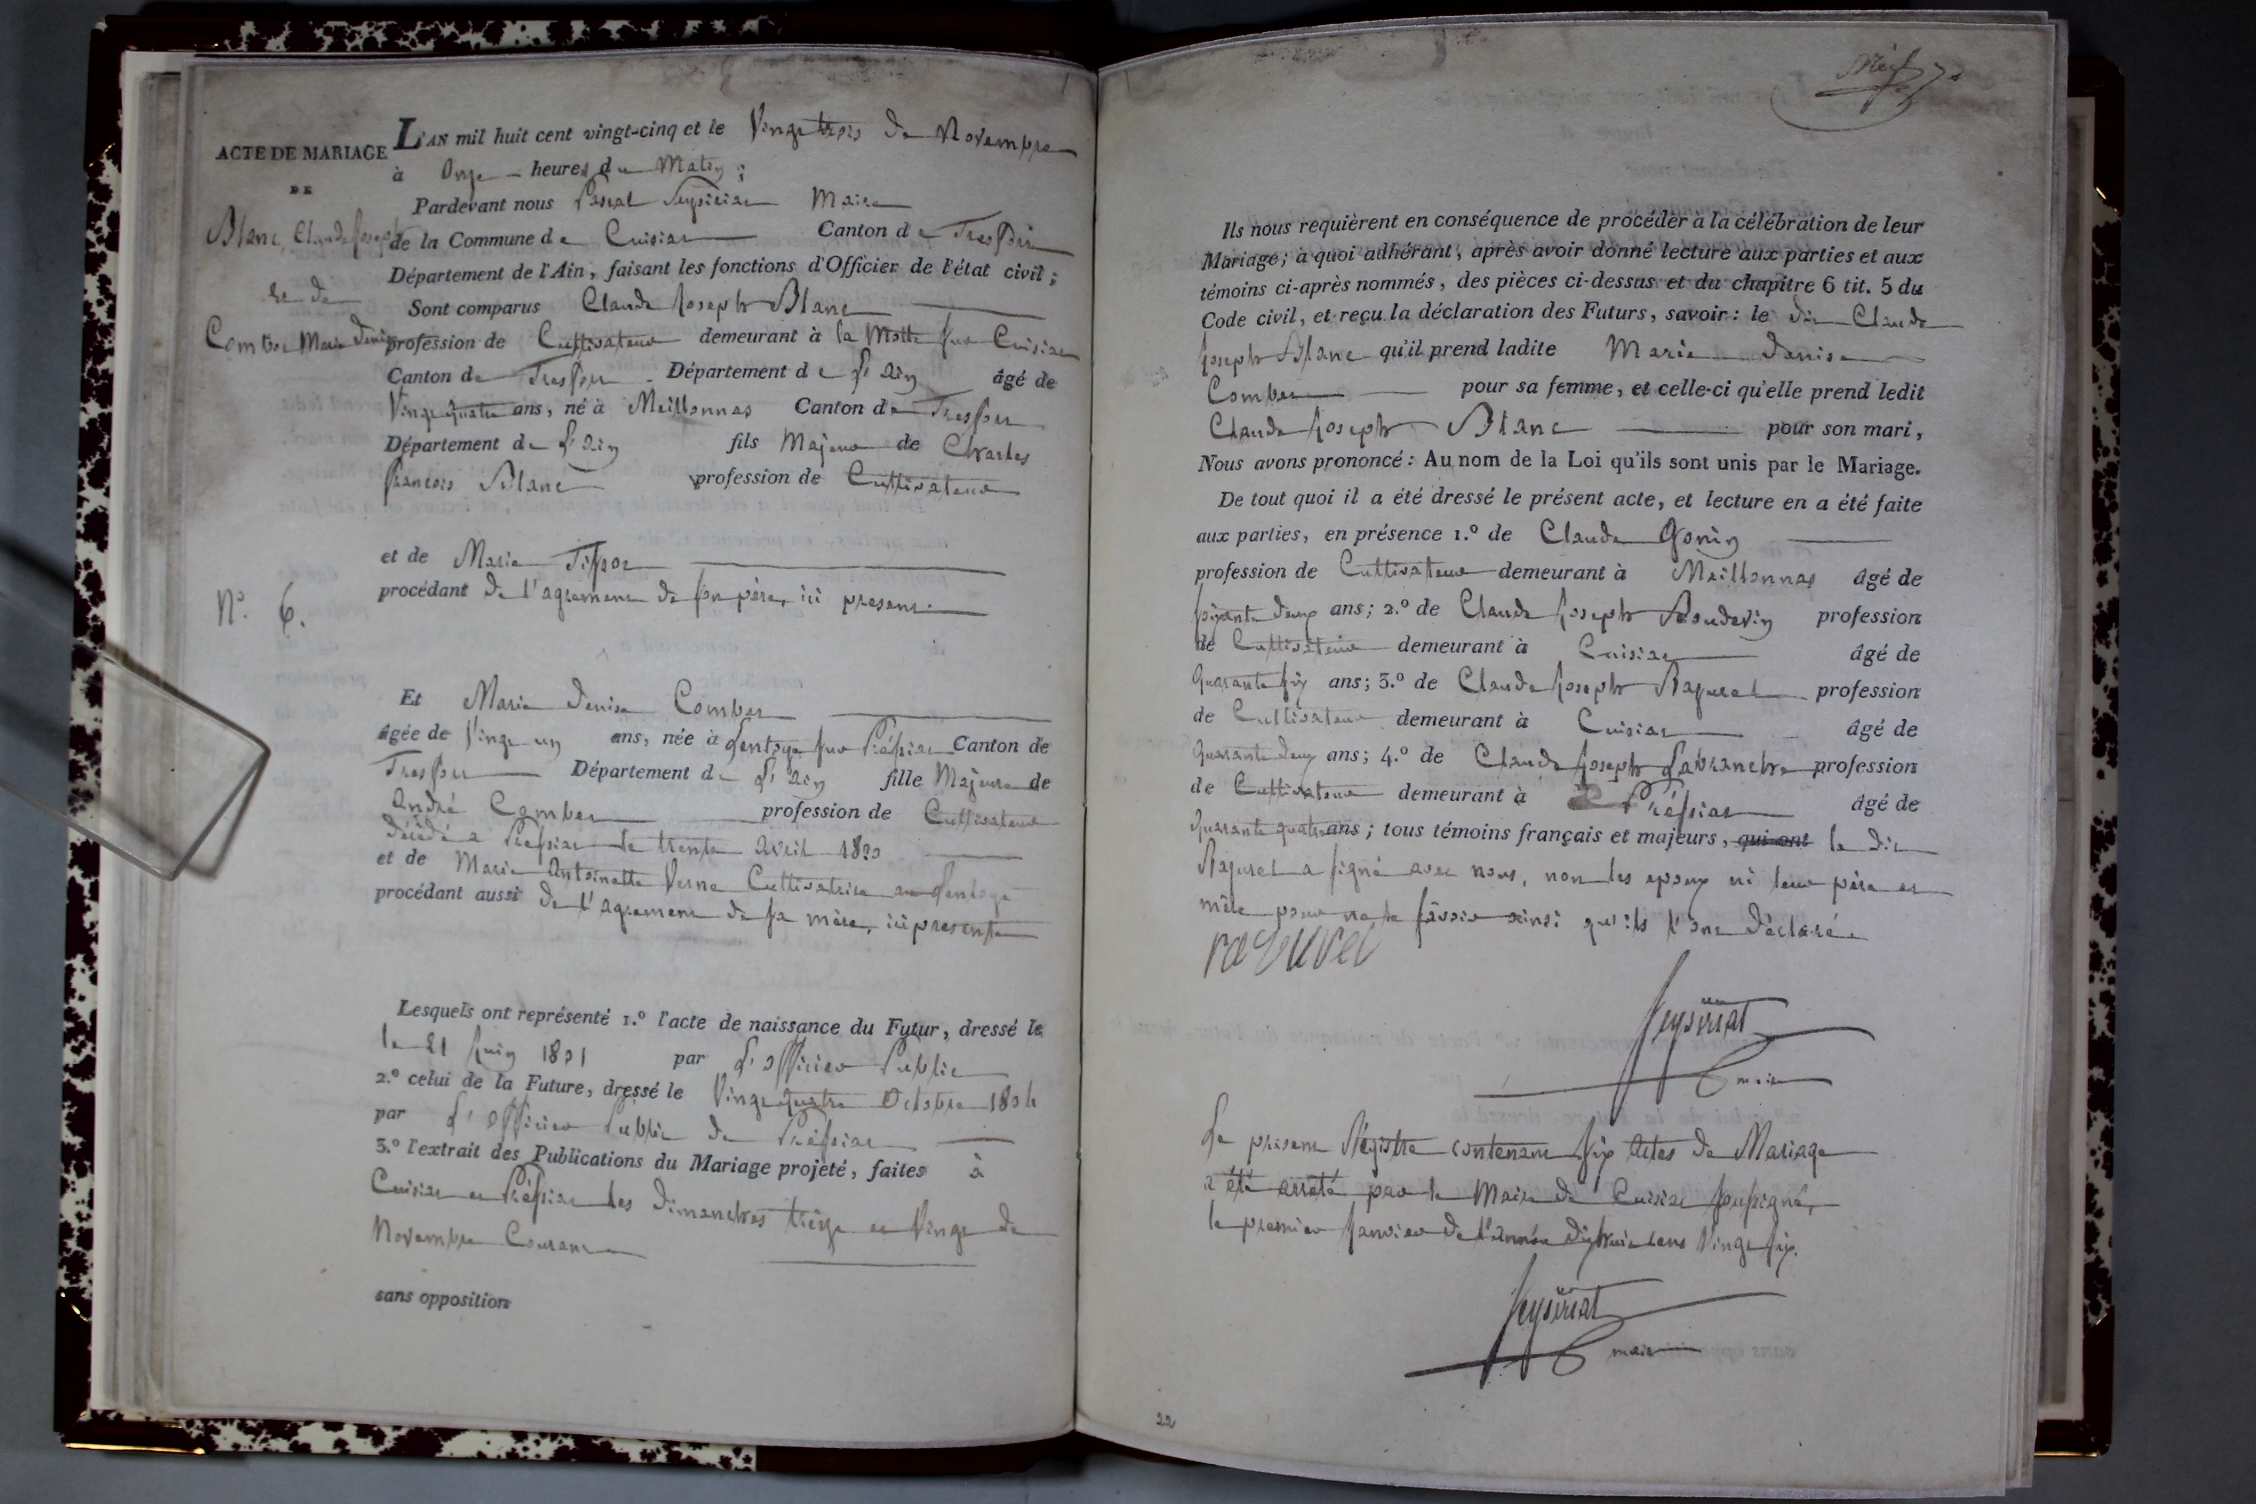 ACTE DE MARIAGE
DE
Blanc, Claude Joseph
et de
Combet Marie Denise
N.º 6.
L'AN mil huit cent vingt-cinq et le Vingt trois de Novembre
à Onze heures du Matin ;
Pardevant nous Pascal Seysiriat Maire
de la Commune de Cuisiat Canton de Treffort
Département de l'Ain, faisant les fonctions d'Officier de l'état civil ;
Sont comparus Claude Joseph Blanc
profession de Cultivateur demeurant à la Motte sur Cuisiat
Canton de Treffort Département de L'ain âgé de
Vingt quatre ans, né à Meillonnas Canton de Treffort
Département de L'ain fils Majeur de Charles
francois Blanc profession de Cultivateur
et de Marie
procédant de l'agrement de son père, ici present
Et Marie Denise Combet
âgée de Vingt un ans, née à Lentaya sur Préssiat Canton de
Treffort Département de L'ain fille Majeure de
André Combet profession de Cultivateur
décédé a Préssiat le trente avril
et de Marie Antoinette Verne Cultivatrice au
procédant aussi de l'agrement de sa mère, ici presente
Lesquels ont représenté 1.º l'acte de naissance du Futur, dressé le
le 21 Juin 1801 par L'officier Public
2.º celui de la Future, dressé le Vingt quatre Octobre 1804
par L'officier Public de Préssiat
3.º l'extrait des Publications du Mariage projeté, faites à
Cuisiat et Préssiat les dimanches treize et Vingt de
Novembre Courant
sans opposition
Ils nous requièrent en conséquence de procéder à la célébration de leur
Mariage ; à quoi adhérant, après avoir donné lecture aux parties et aux
témoins ci-après nommés, des pièces ci-dessus et du chapitre 6 tit. 5 du
Code civil, et reçu la déclaration des Futurs, savoir : le dit Claude
Joseph Blanc qu'il prend ladite Marie Denise
Combet pour sa femme, et celle-ci qu'elle prend ledit
Claude Joseph Blanc pour son mari,
Nous avons prononcé : Au nom de la Loi qu'ils sont unis par le Mariage.
De tout quoi il a été dressé le présent acte, et lecture en a été faite
aux parties, en présence 1.º de Claude Gonin
profession de Cultivateur demeurant à Meillonnas âgé de
soixante deux ans ; 2.º de Claude Joseph Boudevin profession
de Cultivateur demeurant à Cuisiat âgé de
quarante six ans ; 3.º de Claude Joseph Razurel profession
de Cultivateur demeurant à Cuisiat âgé de
quarante deux ans ; 4.º de Claude Joseph Labranche profession
de Cultivateur demeurant à Préssiat âgé de
quarante quatre ans ; tous témoins français et majeurs, qui ont le dit
Razurel a signé avec nous, non les epoux ni leur père et
mère pour ne le savoir ainsi qu'ils l'ont déclaré
razurel
Seysiriat
maire
Le present Régistre contenant six Actes de Mariage
a été arrêté par le Maire de Cuisiat soussigné,
le premier Janvier de l'année dixhuit cent Vingt six.
Seysiriat
maire
22